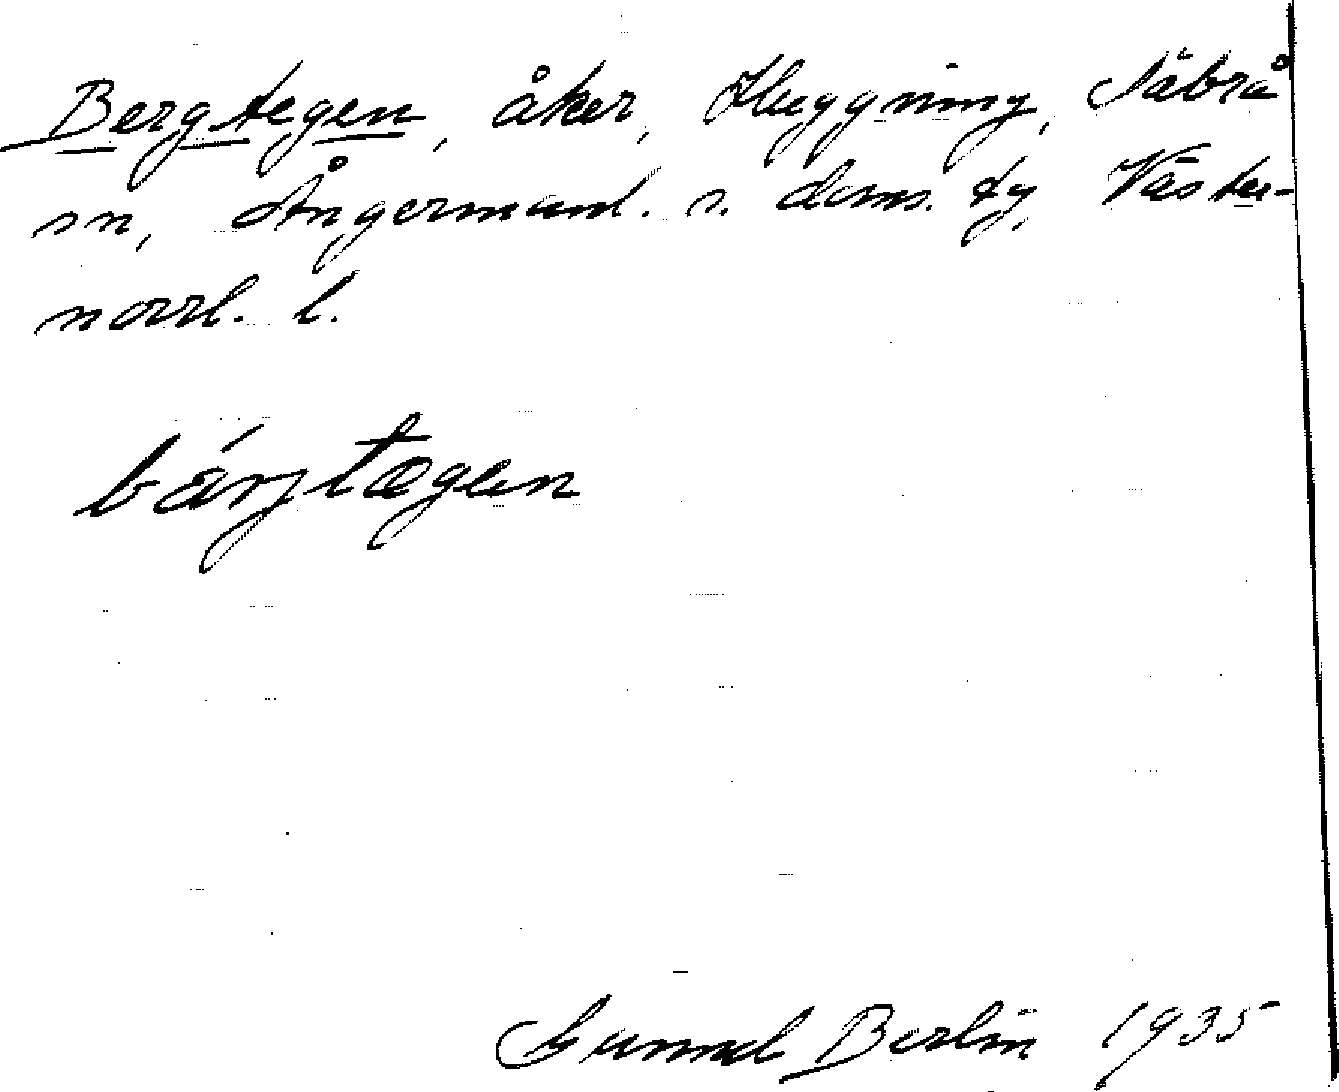 Bergtegen, åker, Huggning, Säbrå
sn, Ångermanl. s. doms. tg, Väster-
norrl. l.
bárjtægen
Gunnel Berlin 1935